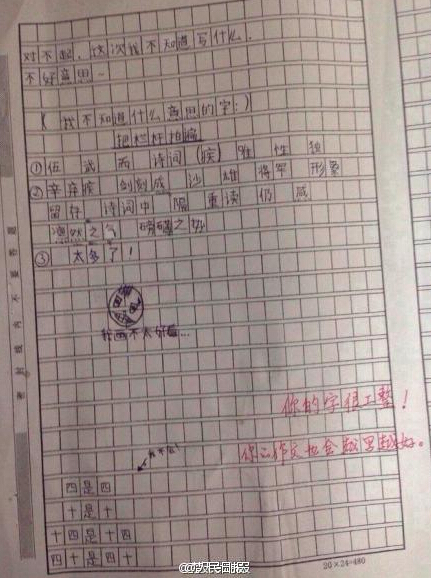 对不起，这次我不知道写什么.
不好意思~
(我不知道什么意思的字:)
把栏杆拍遍
①伍 武 而 诗词 疾 性 独
②辛弃疾 刻成 沙 雄 将军 形象
留存 诗词中 隔 重读 仍 感
浩然之气 磅礴之势
③ 太多了!
我画不太好看...
你的字很工整！
你的作文也会越写越好。
四是四
十是十
十四是十四
四十是四十
20×24=480